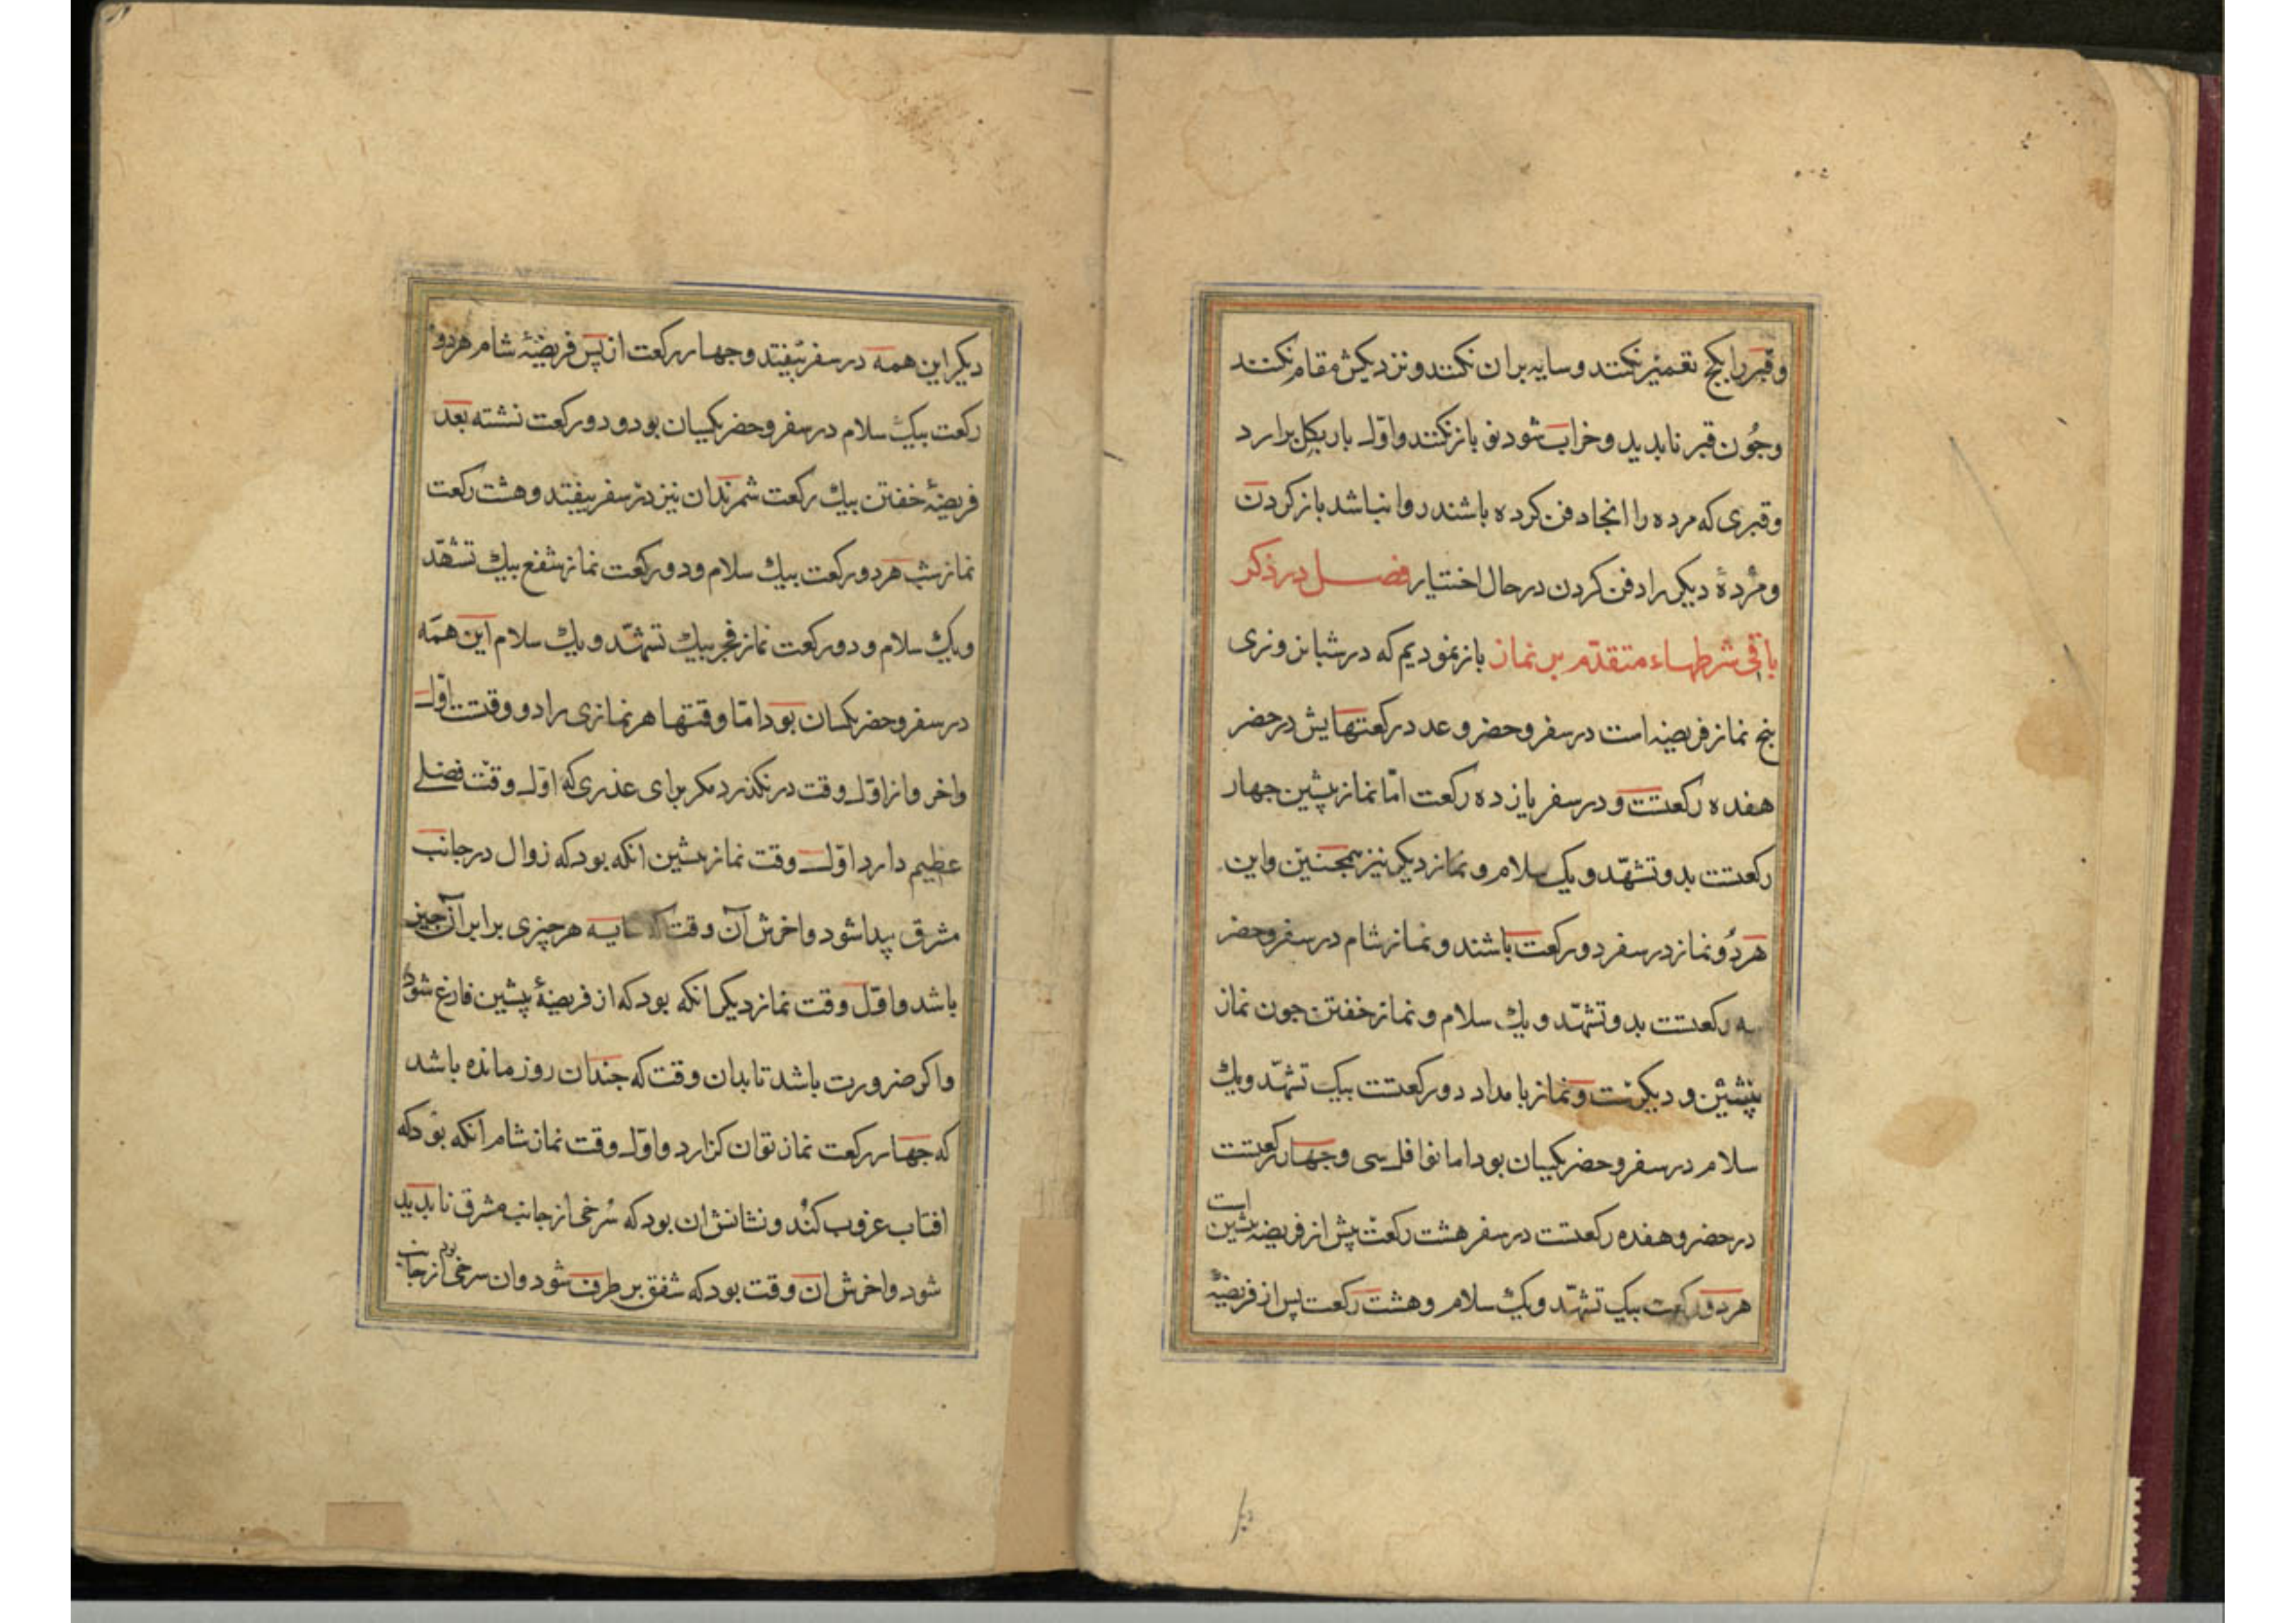 وقبر را بکج تعمیر نکنند و سایه بران نکنند و نزدیکش مقام نکنند
وجُون قبر نابدید و خراب شود نو باز نکنند و اوّل بار بکل برارد
وقبری که مرده را انجا دفن کرده باشند روا نباشد باز کردن
ومُردهٔ دیکر را دفن کردن در حال اختیار فصل در ذکر
باقی شرطهاء متقدّم بر نماز باز نمودیم که در شبانروزی
بنج نماز فریضه است در سفر و حضر و عدد رکعتهایش در حضر
هفده رکعتست و در سفر یازده رکعت امّا نماز پیشین جهار
رکعتست بدو تشهّد و یک سلام و نماز دیکر نیز همجنین و این
هر دُو نماز در سفر دو رکعت باشند و نماز شام در سفر و حضر
سه رکعتست بدو تشهّد و یك سلام و نماز خفتن جون نماز
پیشین و دیکرست و نماز بامداد دو رکعتست بیک تشهّد و یك
سلام در سفر و حضر یکسان بود اما نوافل سی و جهار رکعتست
در حضر و هفده رکعتست در سفر هشت رکعت پیش از فریضه پیشین است
هر دو رکعت بیک تشهّد و یک سلام و هشت رکعت پس از فریضهٔ
دیکر این همه در سفر بیفتد و جهار رکعت از پس فریضهٔ شام هر دو
رکعت بیك سلام در سفر و حضر یکسان بود و دو رکعت نشته بعد
فریضهٔ خفتن بیك رکعت شمرند ان نیز در سفر بیفتد و هشت رکعت
نماز شب هر دو رکعت بیك سلام و دو رکعت نماز شفع بیك تشهّد
ویك سلام و دو رکعت نماز فجر بیك تشهّد و یك سلام این همه
در سفر و حضر یکسان بود امّا وقتها هر نمازی را دو وقتست اوّل
واخر و از اوّل وقت در نکذرد مکر برای عذری که اوّل وقت فضلی
عظیم دارد اوّل وقت نماز پیشین انکه بود که زوال در جانب
مشرق پیدا شود و اخرش آن وقت که سایه هر جیزی برابر آن جیز
باشد و اوّل وقت نماز دیکر انکه بود که از فریضهٔ پیشین فارغ شود
واکر ضرورت باشد تا بدان وقت که جندان روز مانده باشد
که جهار رکعت نماز توان کزارد و اوّل وقت نماز شام انکه بود که
افتاب غروب کند و نشانش ان بود که سُرخی از جانب مشرق نابدید
شود و اخرش ان وقت بود که شفق بر طرف شود و ان سرخی بود از جانب